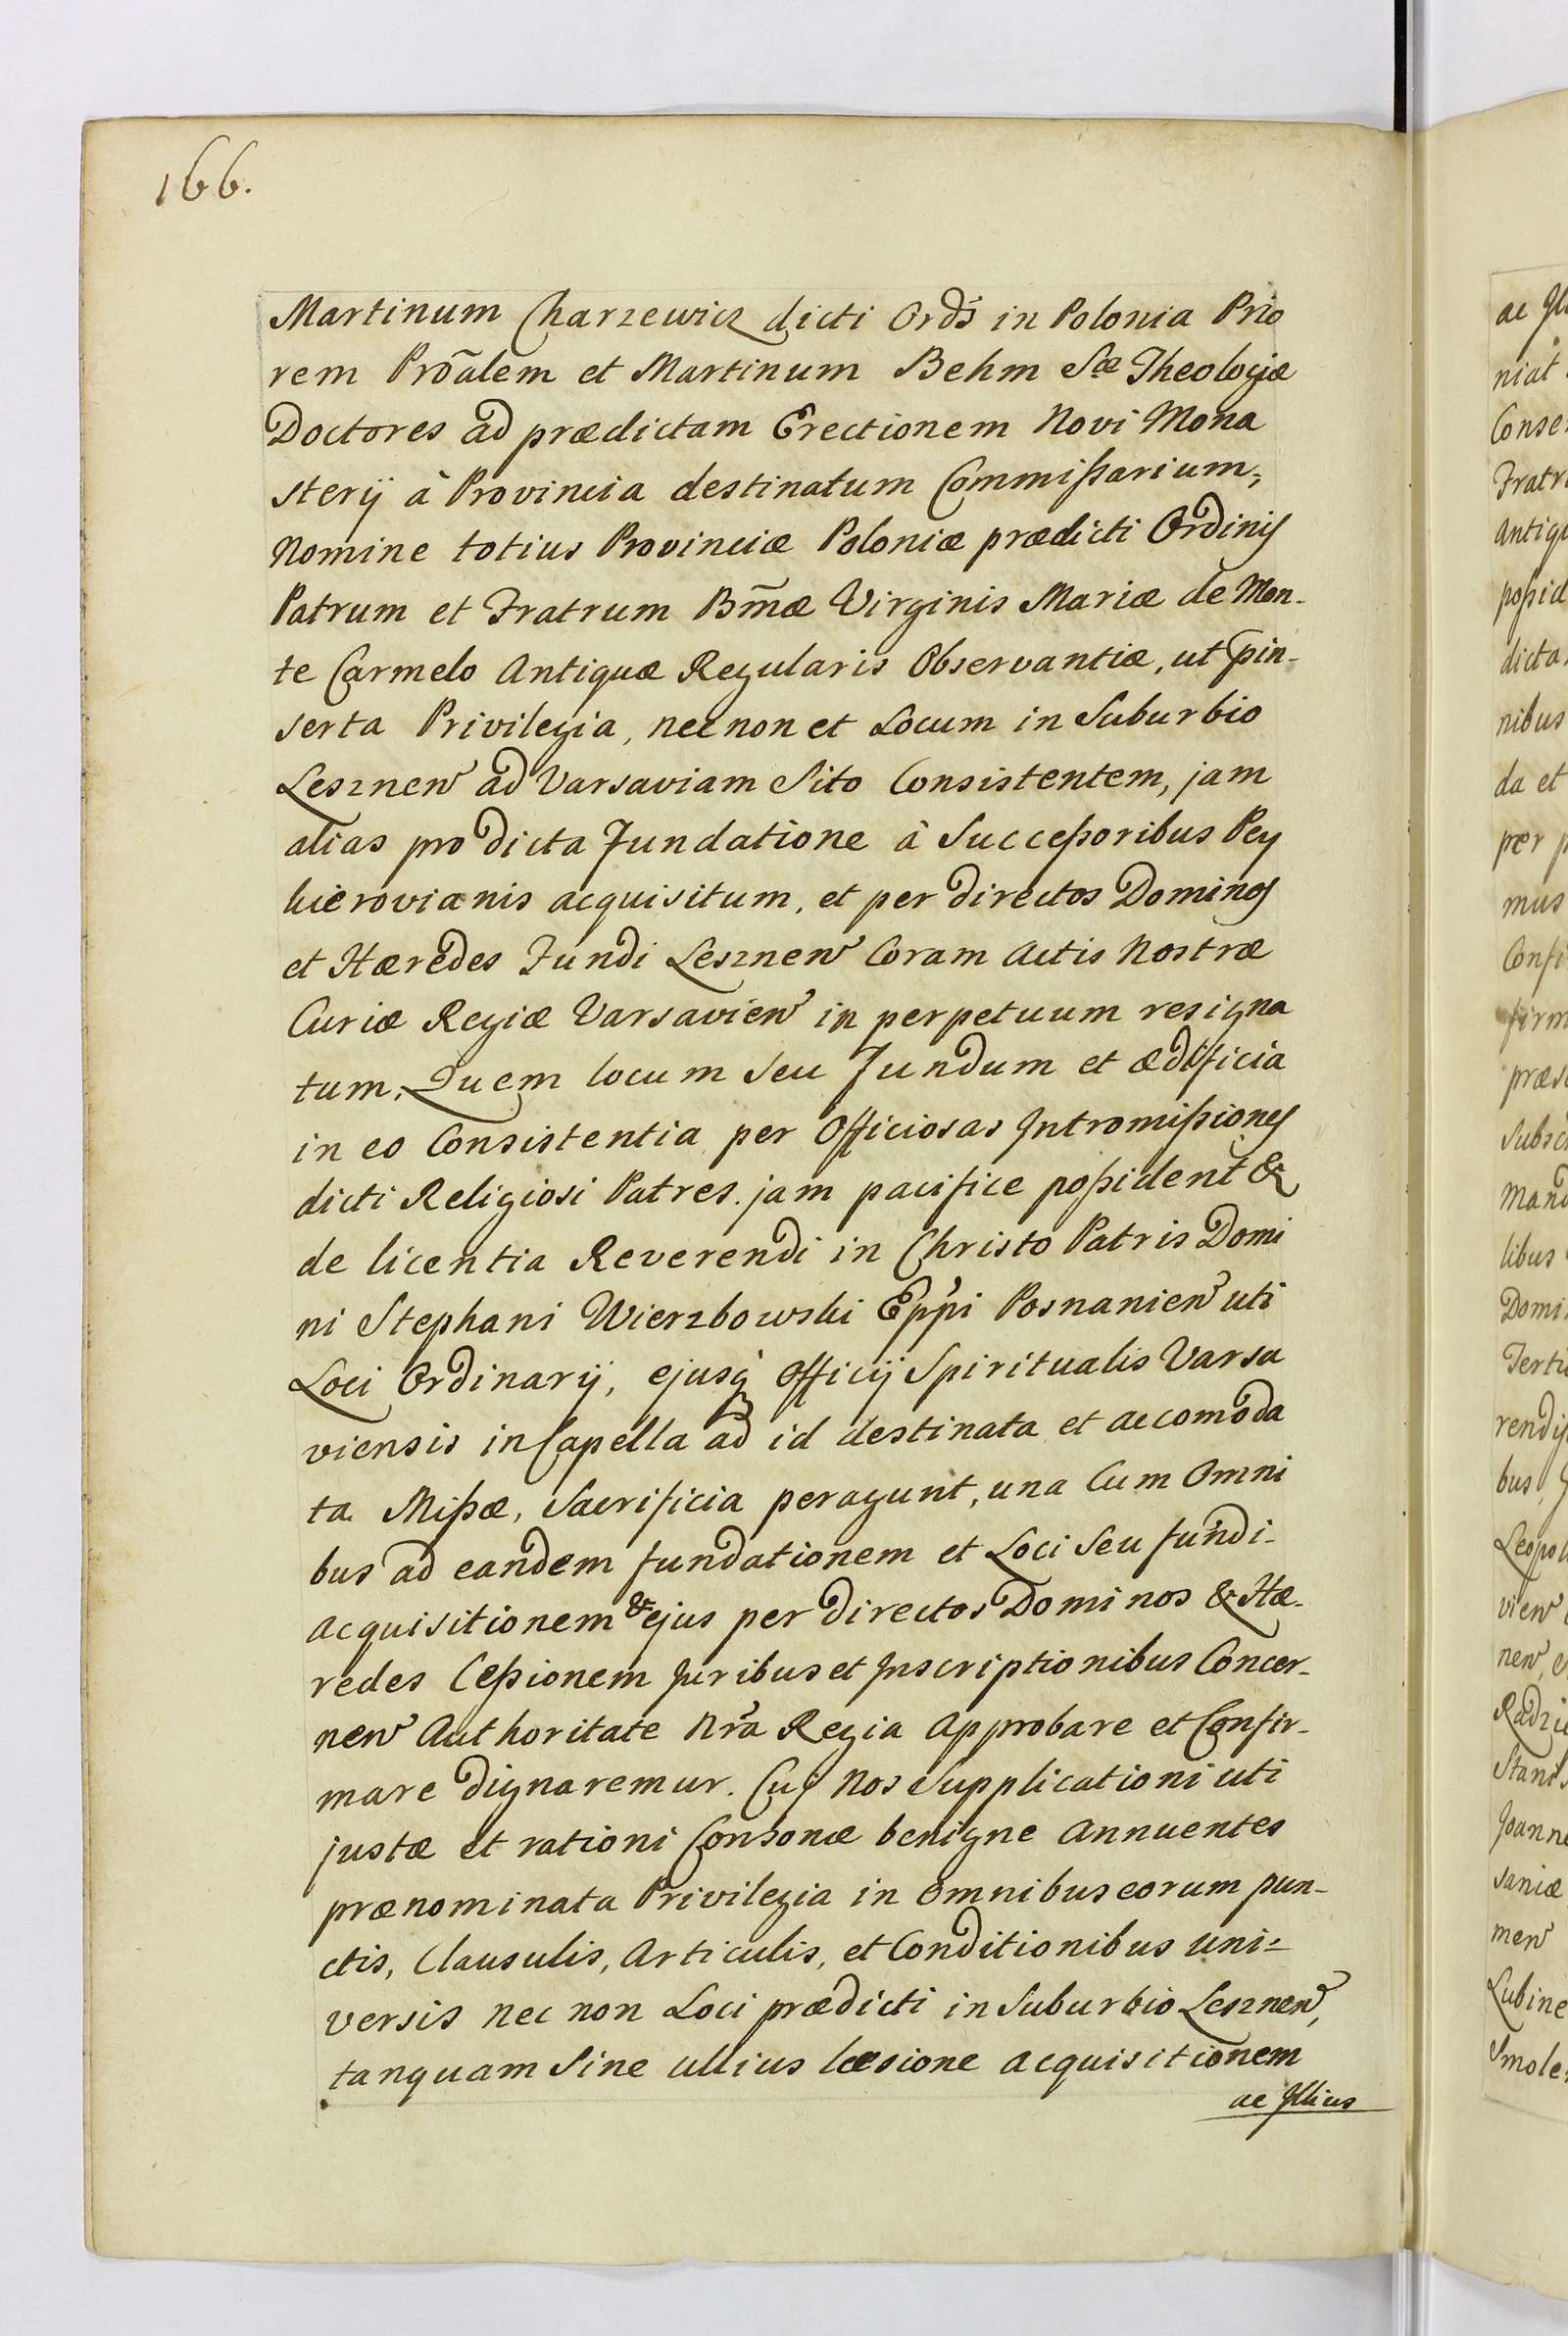 166.
Martinum Charzewicz dicti Ordīs in Polonia Prio
rem Prōalem et Martinum Behm Sæ Theologiæ
Doctores ad prædictam Erectionem Novi Mona
sterij à Provincia destinatum Commißarium,
Nomine totius Provinciæ Poloniæ prædicti Ordinis
Patrum et Fratrum Bm̃æ Virginis Mariæ de Mon-
te Carmelo Antiquæ Regularis Observantiæ, ut pin-
serta Privilegia, nec non et Locum in Suburbio
Leszneñ ad Varsaviam Sito Consistentem, jam
alias pro dicta Fundatione à Succeßoribus Pey
kierovianis acquisitum, et per directos Dominos
et Hæredes Fundi Leszneñ Coram Actis Nostræ
Curiæ Regiæ Varsavieñ in perpetuum resigna
tum, Quem locum seu Fundum et ædificia
in eo Consistentia per Officiosas Intromißiones
dicti Religiosi Patres jam pacifice poßident &
de licentia Reverendi in Christo Patris Domi
ni Stephani Wierzbowski Epp̃i Posnanieñ uti
Loci Ordinarij, ejusq́ Officij Spiritualis Varsa
viensis in Capella ad id destinata et accomoda
ta Mißæ, Sacrificia peragunt, una Cum Omni
bus ad eandem fundationem et Loci Seu fundi-
acquisitionem & ejus per directos Dominos & Hæ-
redes Ceßionem Juribus et Inscriptionibus Concer-
neñ Authoritate Nr̃a Regia Approbare et Confir-
mare dignaremur. Cuj Nos Supplicationi uti
justæ et rationi Consonæ benigne Annuentes
prænominata Privilegia in Omnibus eorum pun-
ctis, Clausulis, Articulis, et Conditionibus uni-
versis nec non Loci prædicti in Suburbio Leszneñ,
tanquam Sine ullius læsione acquisitionem
ac Illius
niat
Conse
Fratr
Antiqu
poßid
dicta
nibus
da et
per p
mus
Confi
firm
præs
Subsc
Mand
libus
Domi
Terti
rendiß
bus
Leopol
vieñ
neñ,
Radzie
Stanis
Joanne
saniæ
meñ
Lubine
Smole